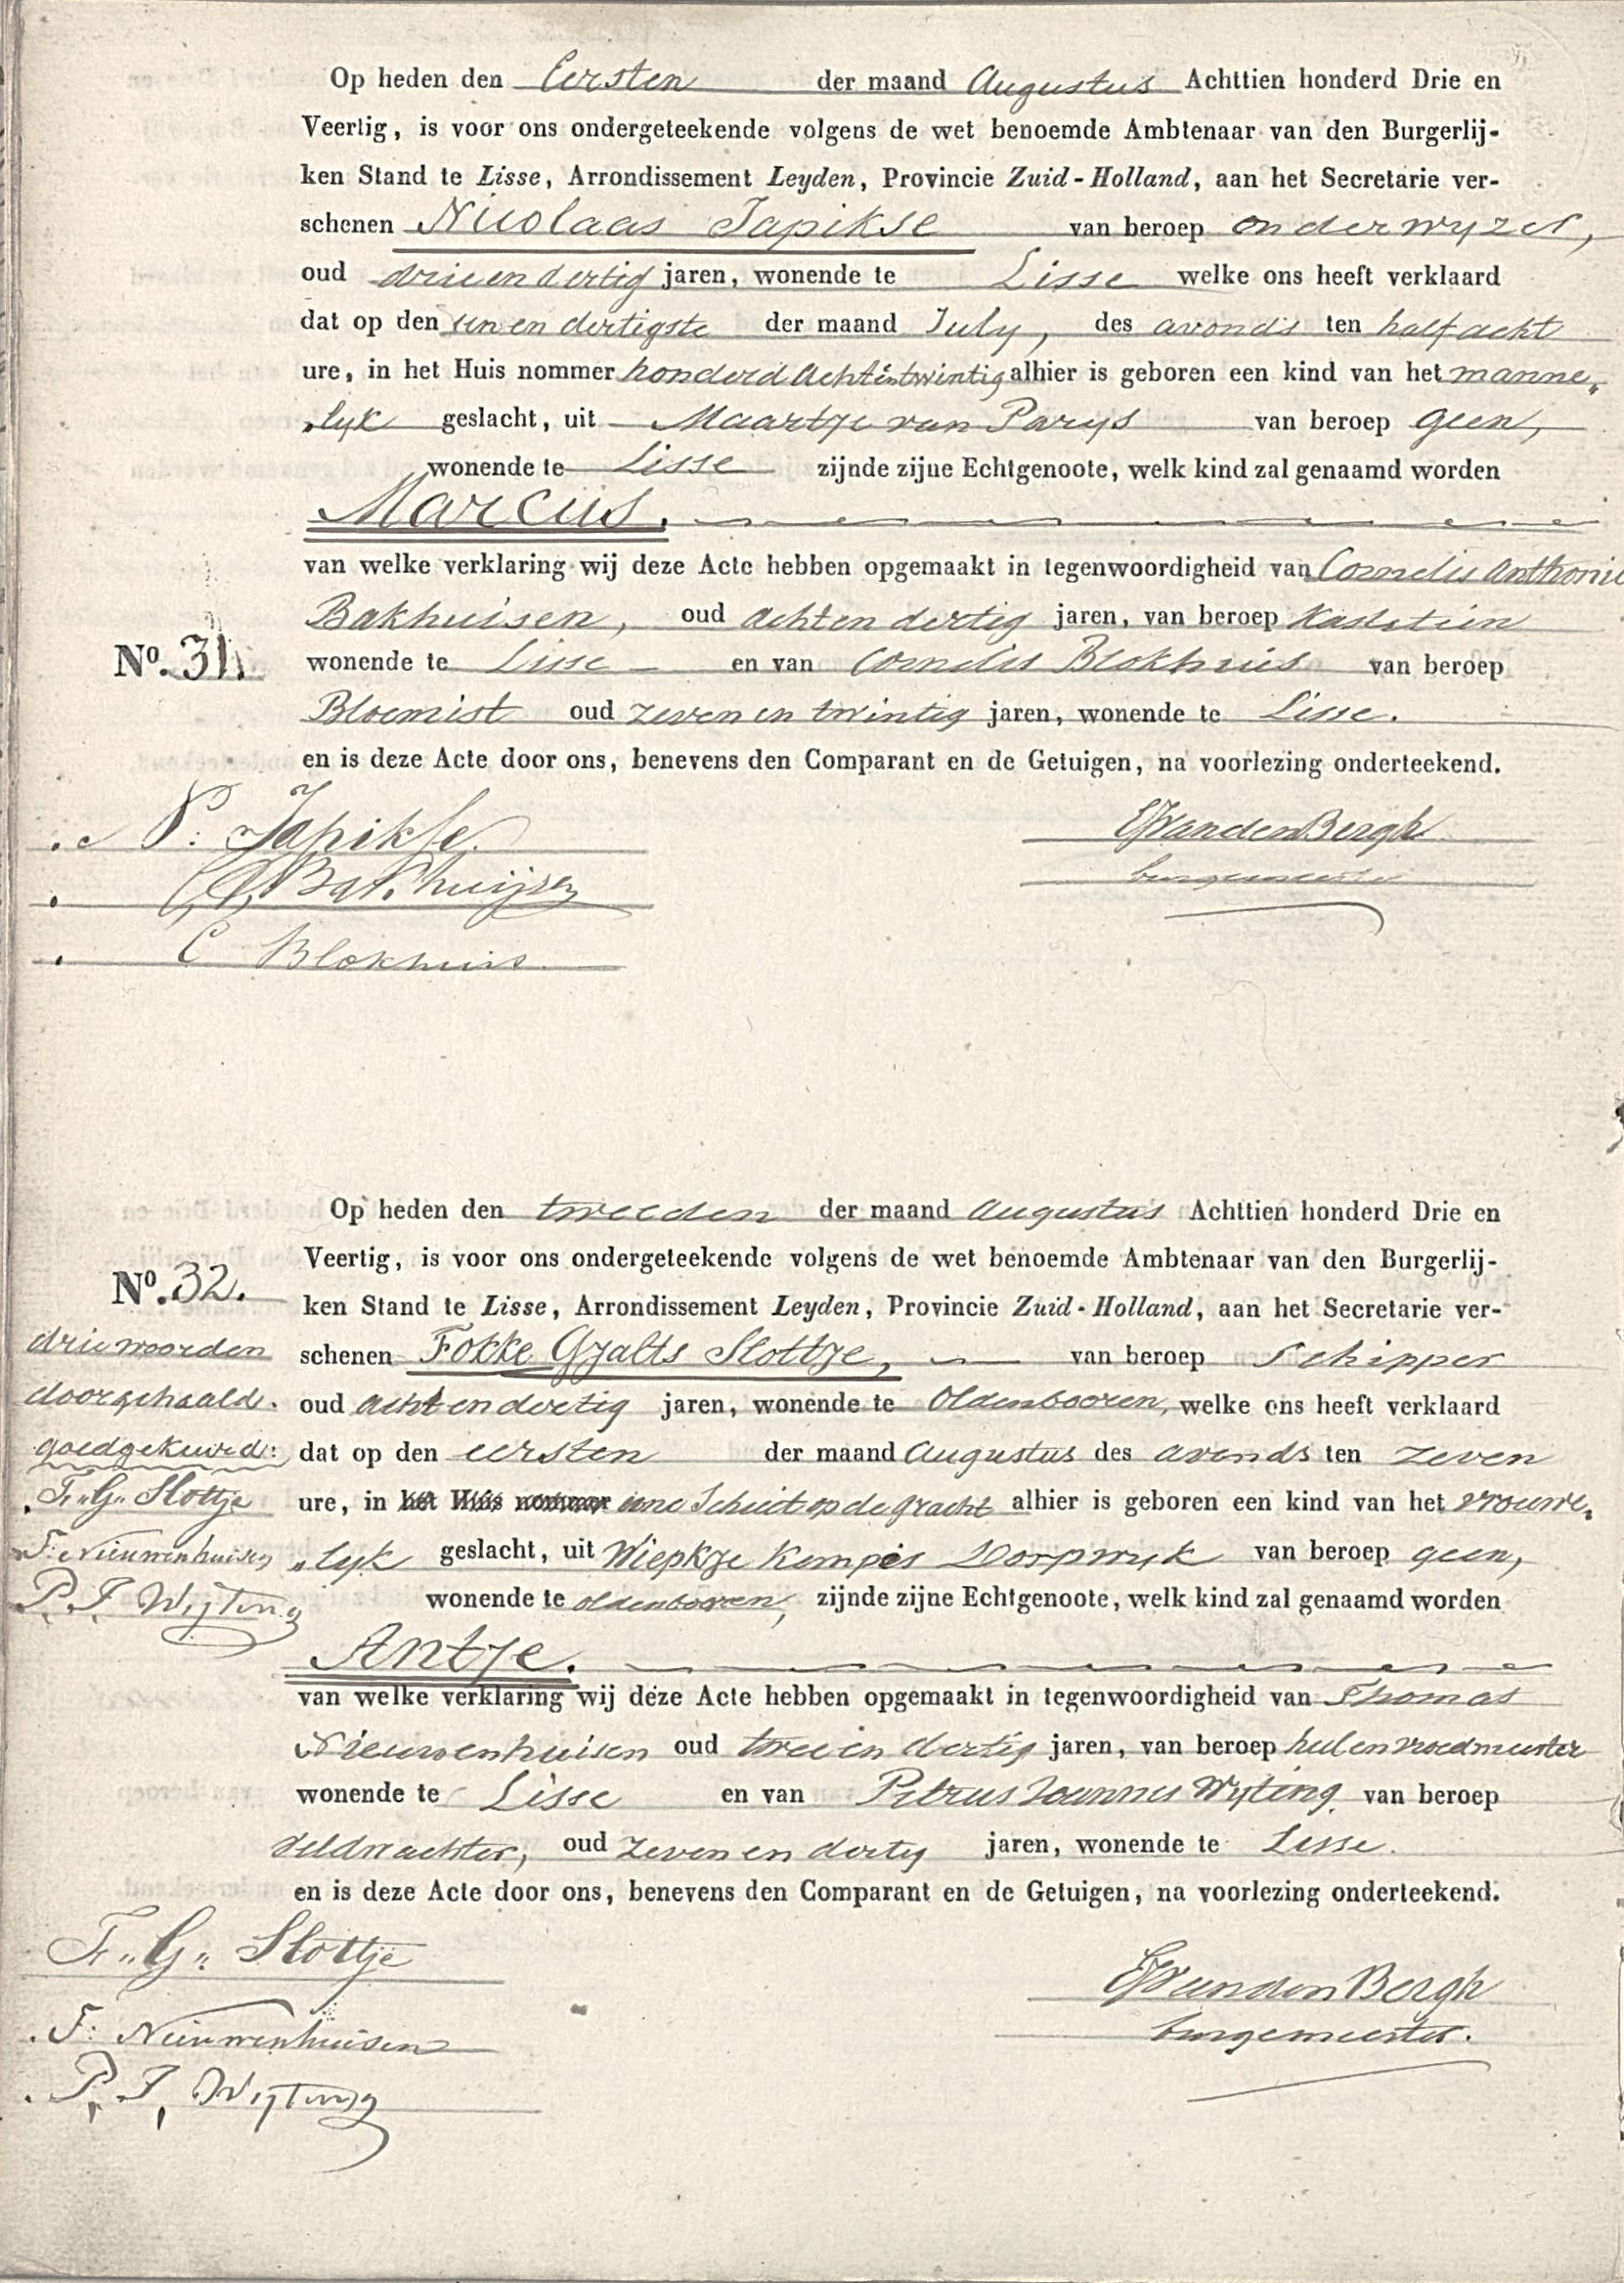 Op heden den Eersten der maand Augustus Achttien honderd Drie en
Veertig, is voor ons ondergeteekende volgens de wet benoemde Ambtenaar van den Burgerlij-
ken Stand te Lisse, Arrondissement Leyden, Provincie Zuid-Holland, aan het Secretarie ver-
schenen Nicolaas Japikse van beroep onderwyzer,
oud drieendertig jaren, wonende te Lisse welke ons heeft verklaard
dat op den een en dertigste der maand July, des avonds ten half acht
ure, in het Huis nommer honderd achtentwintig alhier is geboren een kind van het manne„
„lyk geslacht, uit Maartje van Parys van beroep geen,
wonende te Lisse zijnde zijne Echtgenoote, welk kind zal genaamd worden
Marcus.
van welke verklaring wij deze Acte hebben opgemaakt in tegenwoordigheid van Cornelis Anthonie
Bakhuisen, oud acht en dertig jaren, van beroep Kastelein
No. 31. wonende te Lisse en van Cornelis Blokhuis van beroep
Bloemist oud zeven en twintig jaren, wonende te Lisse.
en is deze Acte door ons, benevens den Comparant en de Getuigen, na voorlezing onderteekend.
N. Japikse
C.A. Bakhuijzen
C Blokhuis
VandenBergh
burgemeester
Op heden den tweeden der maand Augustus Achttien honderd Drie en
Veertig, is voor ons ondergeteekende volgens de wet benoemde Ambtenaar van den Burgerlij-
No. 32.
ken Stand te Lisse, Arrondissement Leyden, Provincie Zuid-Holland, aan het Secretarie ver-
schenen Fokke Gjalts Slottje, van beroep Schipper
oud acht en dertig jaren, wonende te Oldenbooren, welke ons heeft verklaard
dat op den eersten der maand Augustus des avonds ten zeven
ure, in het Huis nommer eene Schuit op de gracht alhier is geboren een kind van het vrouwe„
„lyk geslacht, uit Wiepkje Kempes Dorpwyk van beroep geen,
wonende te oldenbooren, zijnde zijne Echtgenoote, welk kind zal genaamd worden
Antje.
van welke verklaring wij deze Acte hebben opgemaakt in tegenwoordigheid van Thomas
Nieuwenhuisen oud twee en dertig jaren, van beroep heel en vroedmeester
wonende te Lisse en van Petrus Joannes Wyting van beroep
veldwachter, oud zeven en dertig jaren, wonende te Lisse.
en is deze Acte door ons, benevens den Comparant en de Getuigen, na voorlezing onderteekend.
drie woorden
doorgehaald.
goedgekeurd:
F„G„ Slottje
T: Nieuwenhuisen
P. J. Wijting
F„G„ Slottje
T: Nieuwenhuisen
P. J. Wijting
VandenBergh
burgemeester.